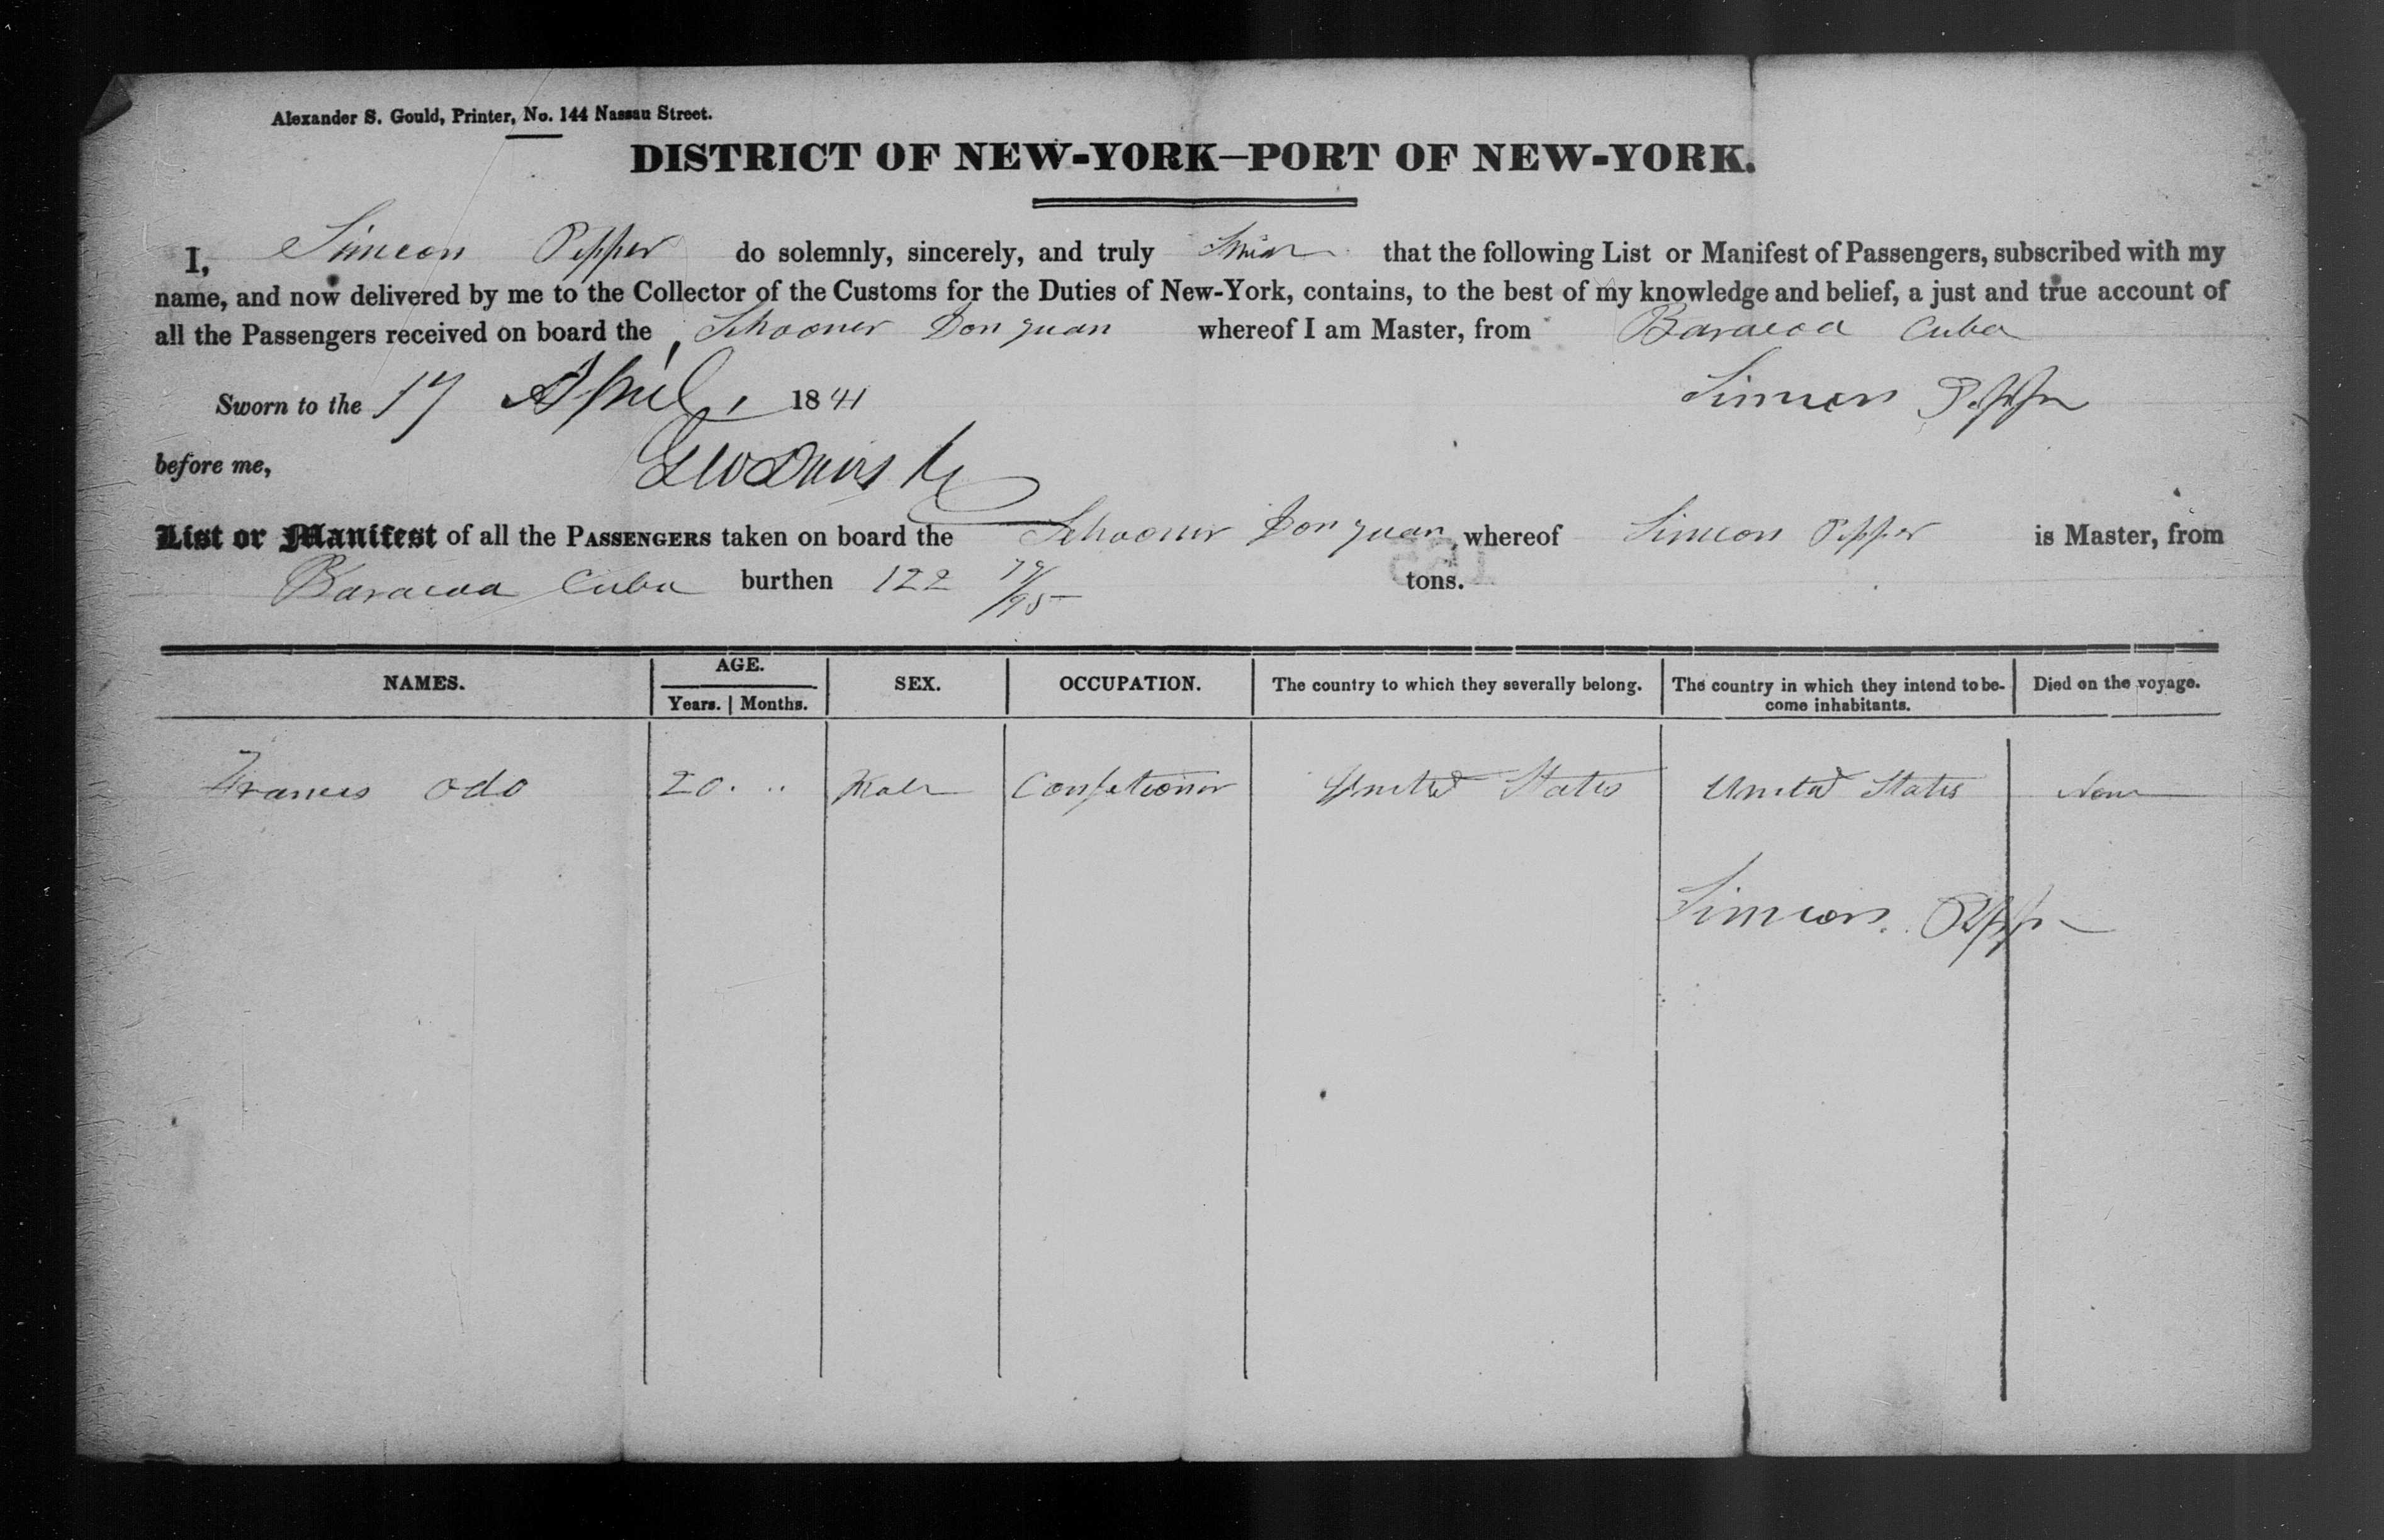 Alexander S. Gould, Printer, No. 144 Nassau Street.
DISTRICT OF NEW-YORK—PORT OF NEW-YORK.
I, Simeon Pepper do solemnly, sincerely, and truly Swear that the following List or Manifest of Passengers, subscribed with my
name, and now delivered by me to the Collector of the Customs for the Duties of New-York, contains, to the best of my knowledge and belief, a just and true account of
all the Passengers received on board the Schooner Don Juan whereof I am Master, from Baracoa Cuba
Sworn to the 17 April, 1841 Simeon Pepper
before me,
List or Manifest of all the PASSENGERS taken on board the Schooner Don Juan, whereof Simeon Pepper is Master, from
Baracoa Cuba burthen 122 79/95 tons.
NAMES. AGE. Years. Months. SEX. OCCUPATION. The country to which they severally belong. The country in which they intend to be- come inhabitants. Died on the voyage.
Francis Odo 20. .. Male Confetioner United States United States None
Simeon Pepper